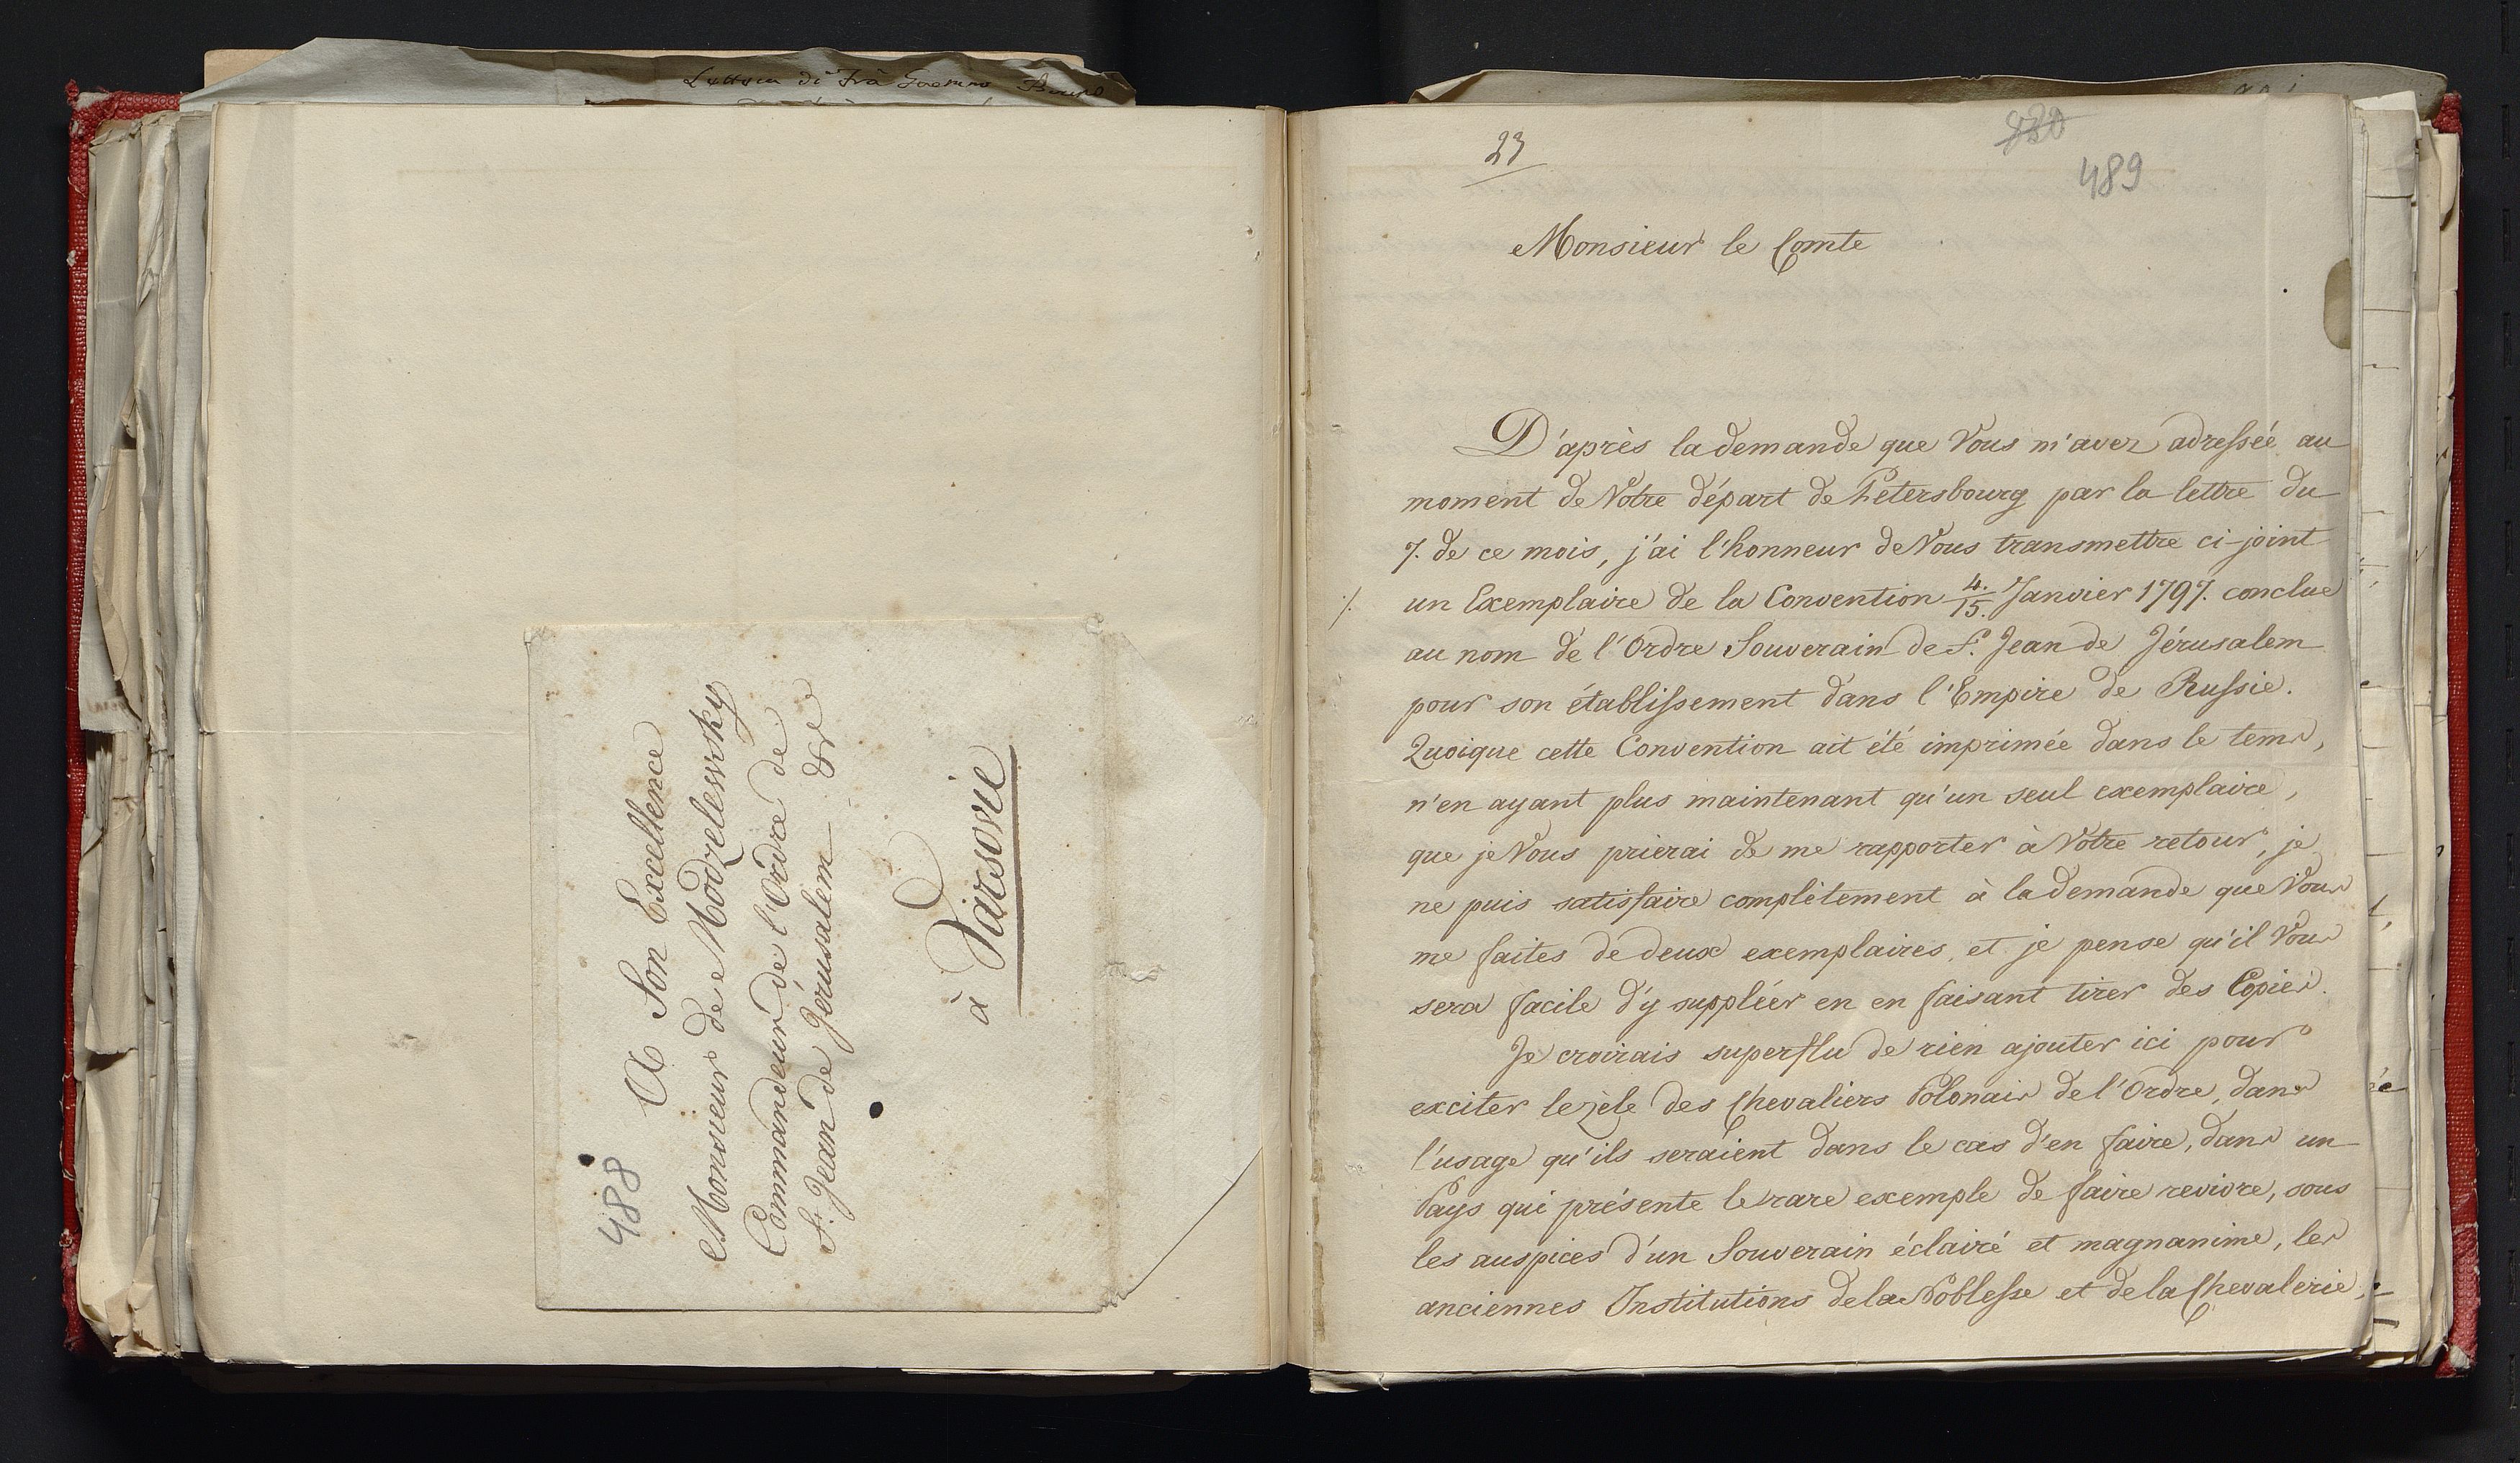 Lettera di Frà
488
A Son Excellence
Monsieur de Modzelewsky
Commandeur de l'Ordre de
St. Jean de Jérusalem &re
à Varsovie
23
489
Monsieur le Comte
D'après la demande que Vous m'avez adressée au
moment de Votre départ de Petersbourg par la lettre du
7. de ce mois, j'ai l'honneur de Vous transmettre ci-joint
·/. un Exemplaire de la Convention 4./15. Janvier 1797. conclue
au nom de l'Ordre Souverain de St. Jean de Jérusalem
pour son établissement dans l'Empire de Russie.
Quoique cette Convention ait été imprimée dans le tems,
n'en ayant plus maintenant qu'un seul exemplaire,
que je Vous prierai de me rapporter à Votre retour, je
ne puis satisfaire complètement à la demande que Vous
me faites de deux exemplaires, et je pense qu'il Vous
sera facile d'y suppléer en en faisant tirer des Copies.
Je croirais superflu de rien ajouter ici pour
exciter le zèle des Chevaliers Polonais de l'Ordre, dans
l'usage qu'ils seraient dans le cas d'en faire, dans un
Pays qui présente le rare exemple de faire revivre, sous
les auspices d'un Souverain éclairé et magnanime, les
anciennes Institutions de la Noblesse et de la Chevalerie,